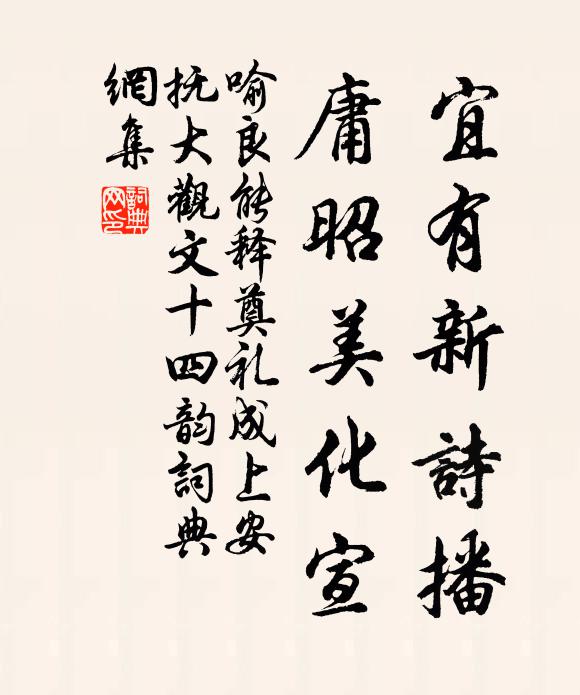 宜有新詩播
庸昭美化宣
喻良能释奠礼成上安
抚大觀文十四韵詞典
網集
詞典網印